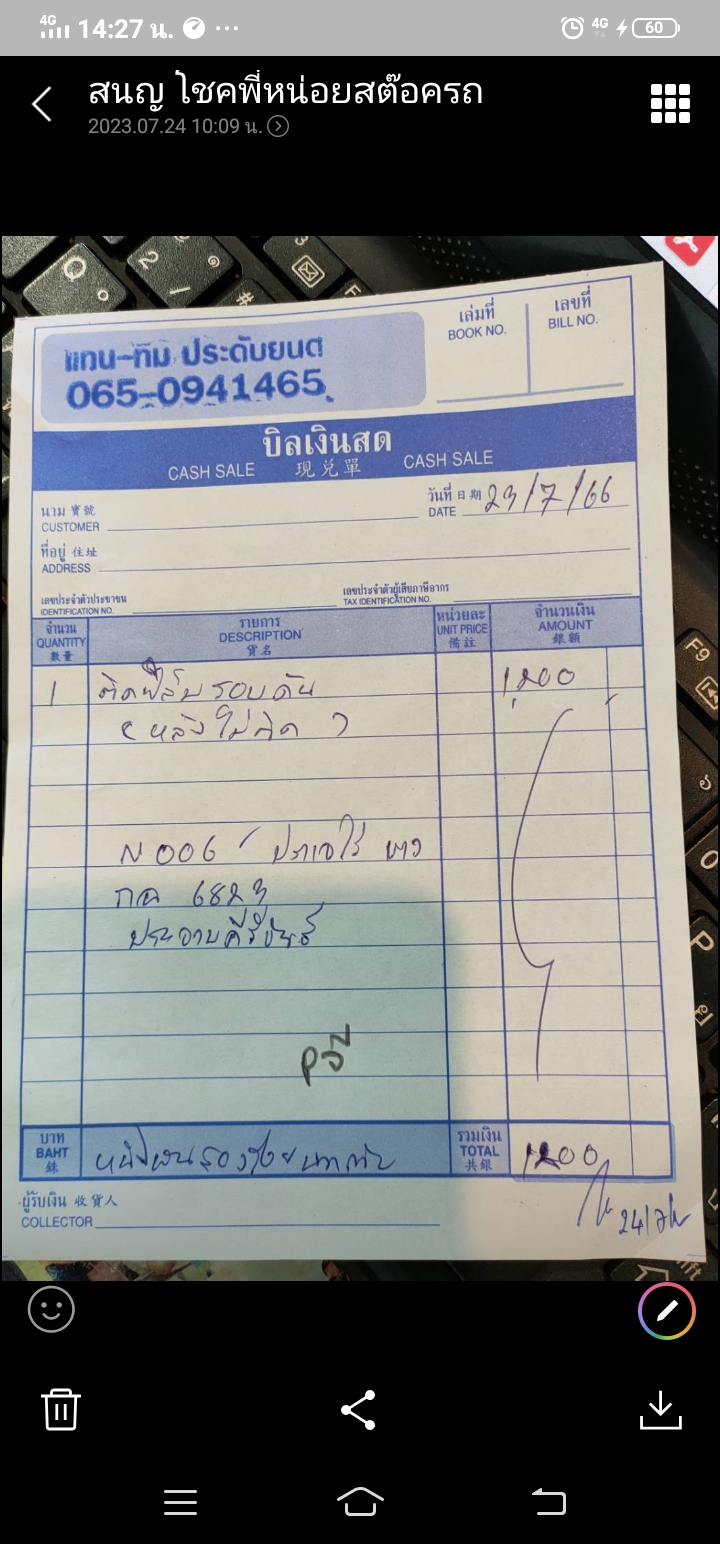 4G 14:27 น. 4G 60
สนญ โชคพี่หน่อยสต๊อครถ
2023.07.24 10:09 น.
แทน-ทิม ประดับยนต์
065-0941465
เล่มที่
BOOK NO.
เลขที่
BILL NO.
บิลเงินสด
CASH SALE 現兑單 CASH SALE
นาม 寶號
CUSTOMER
วันที่ 日期
DATE 23/7/66
ที่อยู่ 住址
ADDRESS
เลขประจำตัวประชาชน
IDENTIFICATION NO.
เลขประจำตัวผู้เสียภาษีอากร
TAX IDENTIFICATION NO.
จำนวน
QUANTITY
數量
รายการ
DESCRIPTION
貨名
หน่วยละ
UNIT PRICE
備註
จำนวนเงิน
AMOUNT
銀額
1 ติดฟิล์มรอบคัน 1,200
(หลังไม่ติด)
N006
กฉ 6823
ประจวบคีรีขันธ์
บาท
BAHT
銖
หนึ่งพันสองร้อยบาทถ้วน
รวมเงิน
TOTAL
共銀
1200
ผู้รับเงิน 收貨人
COLLECTOR